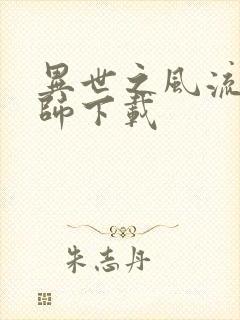 異世之風流
師下載
朱志丹